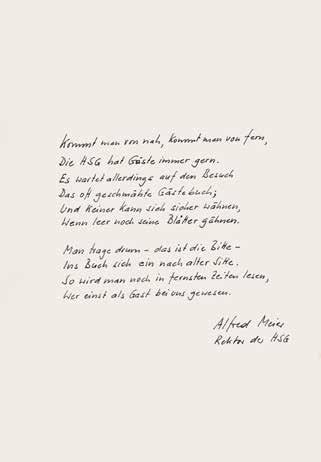 Kommt man von nah, kommt man von fern,
Die HSG hat Gäste immer gern.
Es wartet allerdings auf den Besuch
Das oft geschmähte Gästebuch;
Und keiner kann sich sicher wähnen,
Wenn leer noch seine Blätter gähnen.
Man trage drum – das ist die Bitte –
Ins Buch sich ein nach alter Sitte.
So wird man noch in fernsten Zeiten lesen,
Wer einst als Gast bei uns gewesen.
Alfred Meier
Rektor der HSG